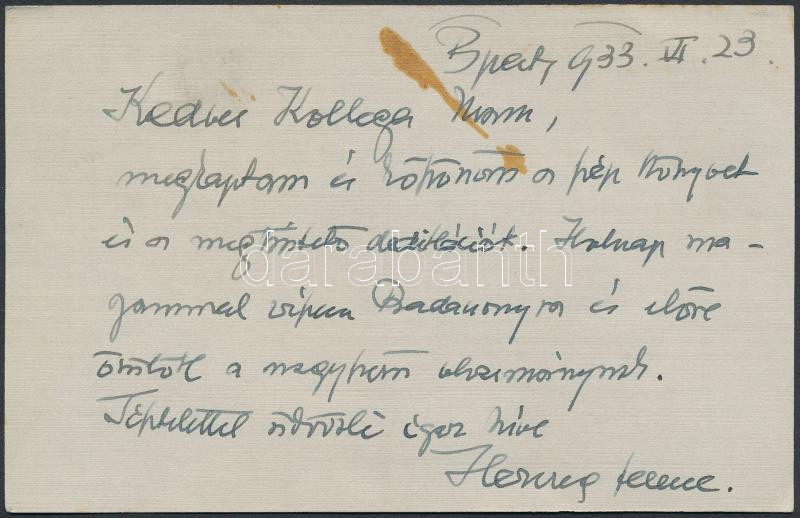 Bpest, 933. VI. 23.
Kedves Kollega Uram,
megkaptam és köszönöm a szép könyvet
és a megtisztelő dedikációt. Holnap ma-
gammal viszem Badacsonyra és előre
örülök a nagyszerű olvasmánynak.
Tisztelettel üdvözli igaz híve
Herczeg Ferenc.
darabanth